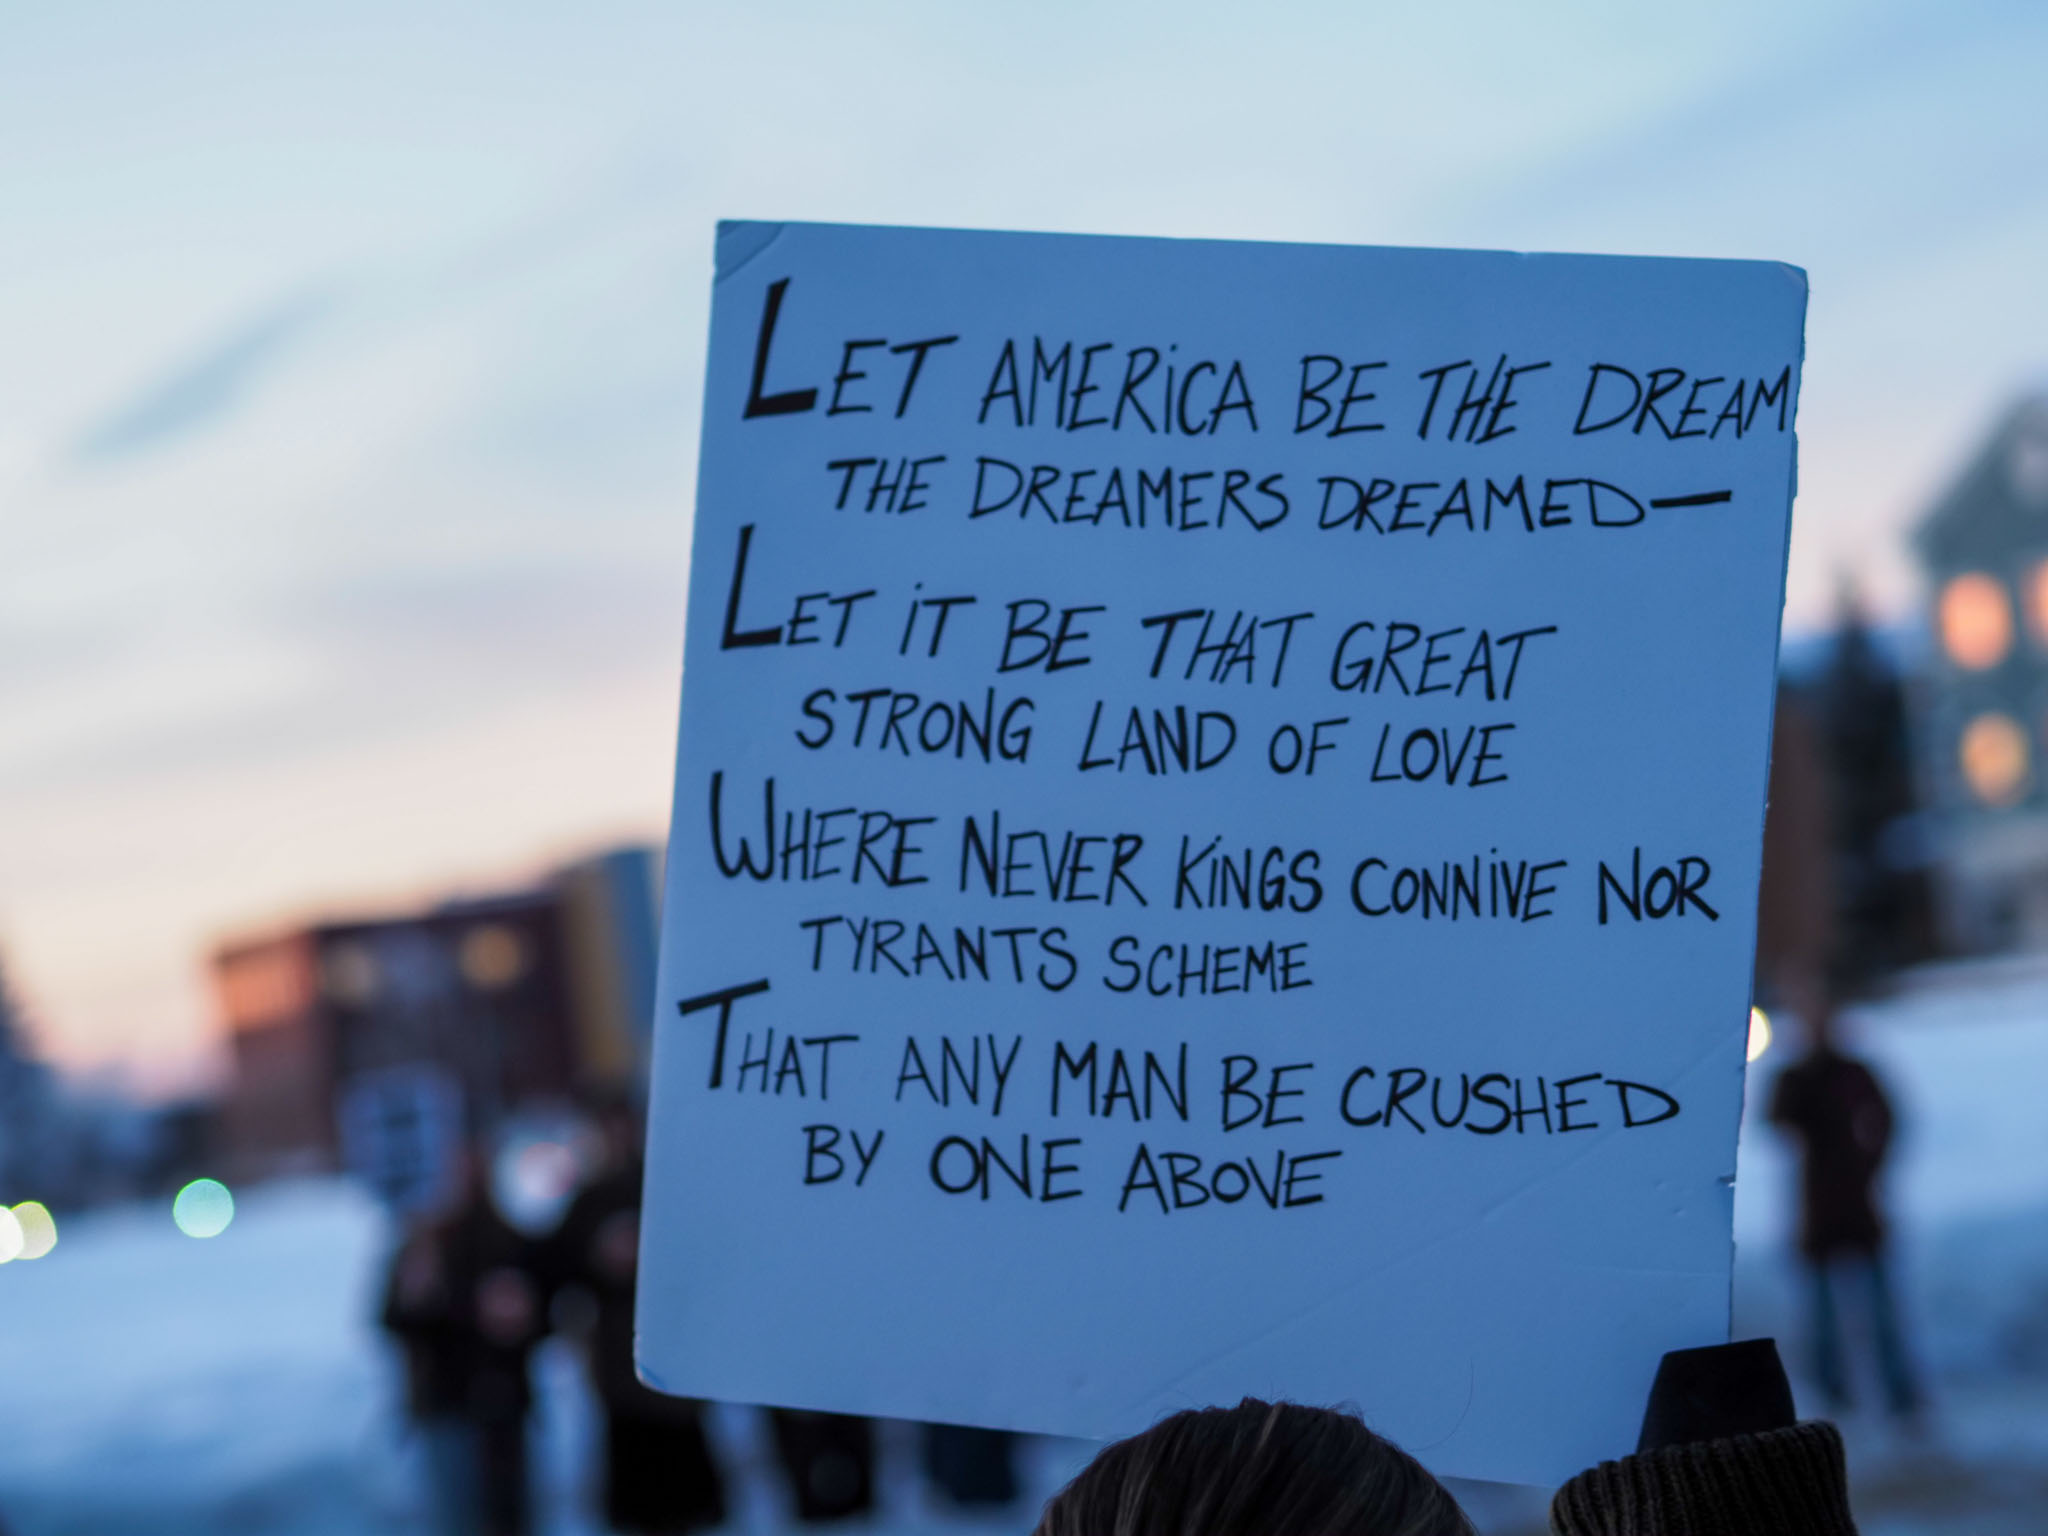 LET AMERICA BE THE DREAM
THE DREAMERS DREAMED—
LET IT BE THAT GREAT
STRONG LAND OF LOVE
WHERE NEVER KINGS CONNIVE NOR
TYRANTS SCHEME
THAT ANY MAN BE CRUSHED
BY ONE ABOVE